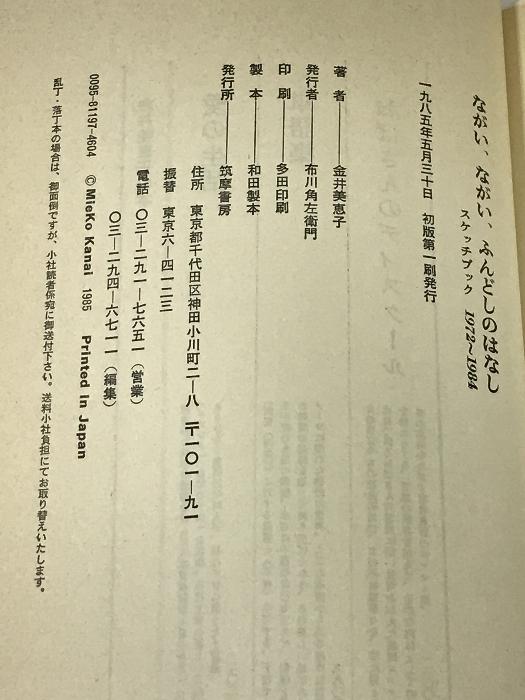 ながい、ながい、ふんどしのはなし
スケッチブック 1972〜1984
一九八五年五月三十日 初版第一刷発行
著者――金井美恵子
発行者――布川角左衛門
印刷――多田印刷
製本――和田製本
発行所――筑摩書房
住所 東京都千代田区神田小川町二―八 〒一〇一―九一
振替 東京六―四一二三
電話 〇三―二九一―七六五一(営業)
〇三―二九四―六七一一(編集)
0095-81197-4604 © Mieko Kanai 1985 Printed in Japan
乱丁・落丁本の場合は、御面倒ですが、小社読者係宛に御送付下さい。送料小社負担にてお取り替えいたします。